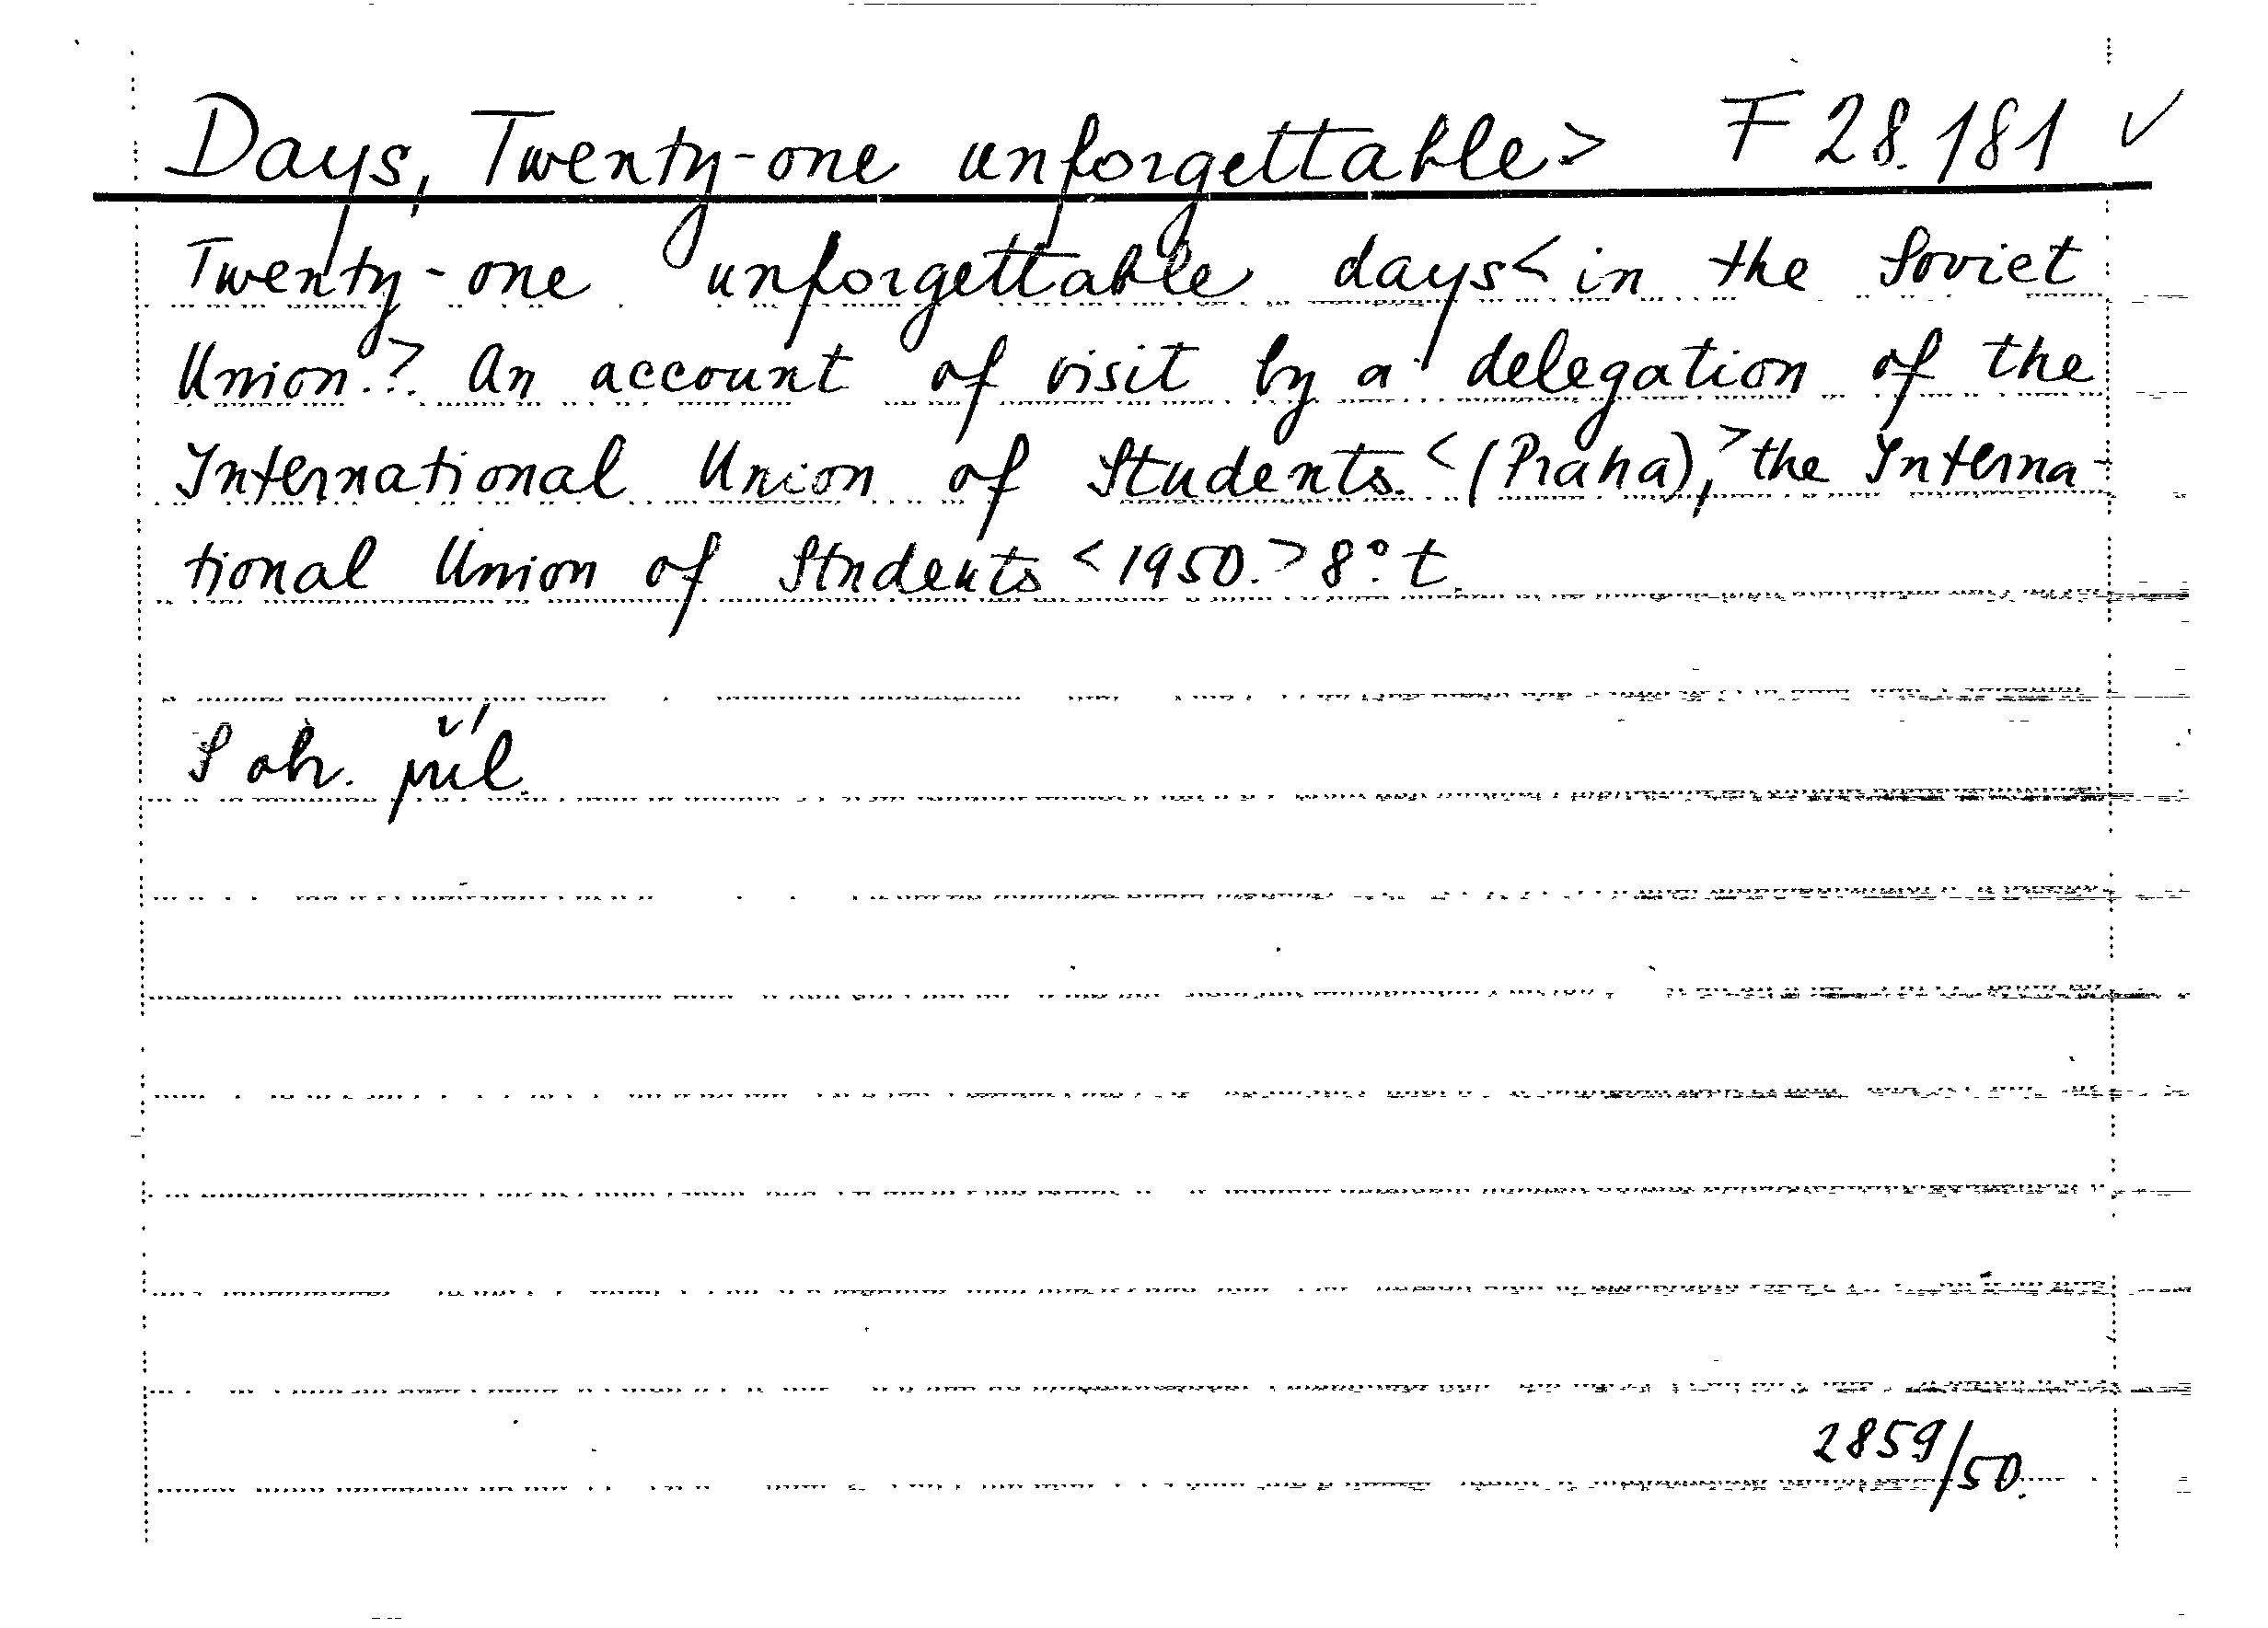 Days, Twenty-one unforgettable> F 28.181 ✓
Twenty-one unforgettable days< in the Soviet
Union.> An account of visit by a delegation of the
International Union of Students <(Praha),> the Interna-
tional Union of Students <1950.> 8° t.
S obr. příl.
2859/50.